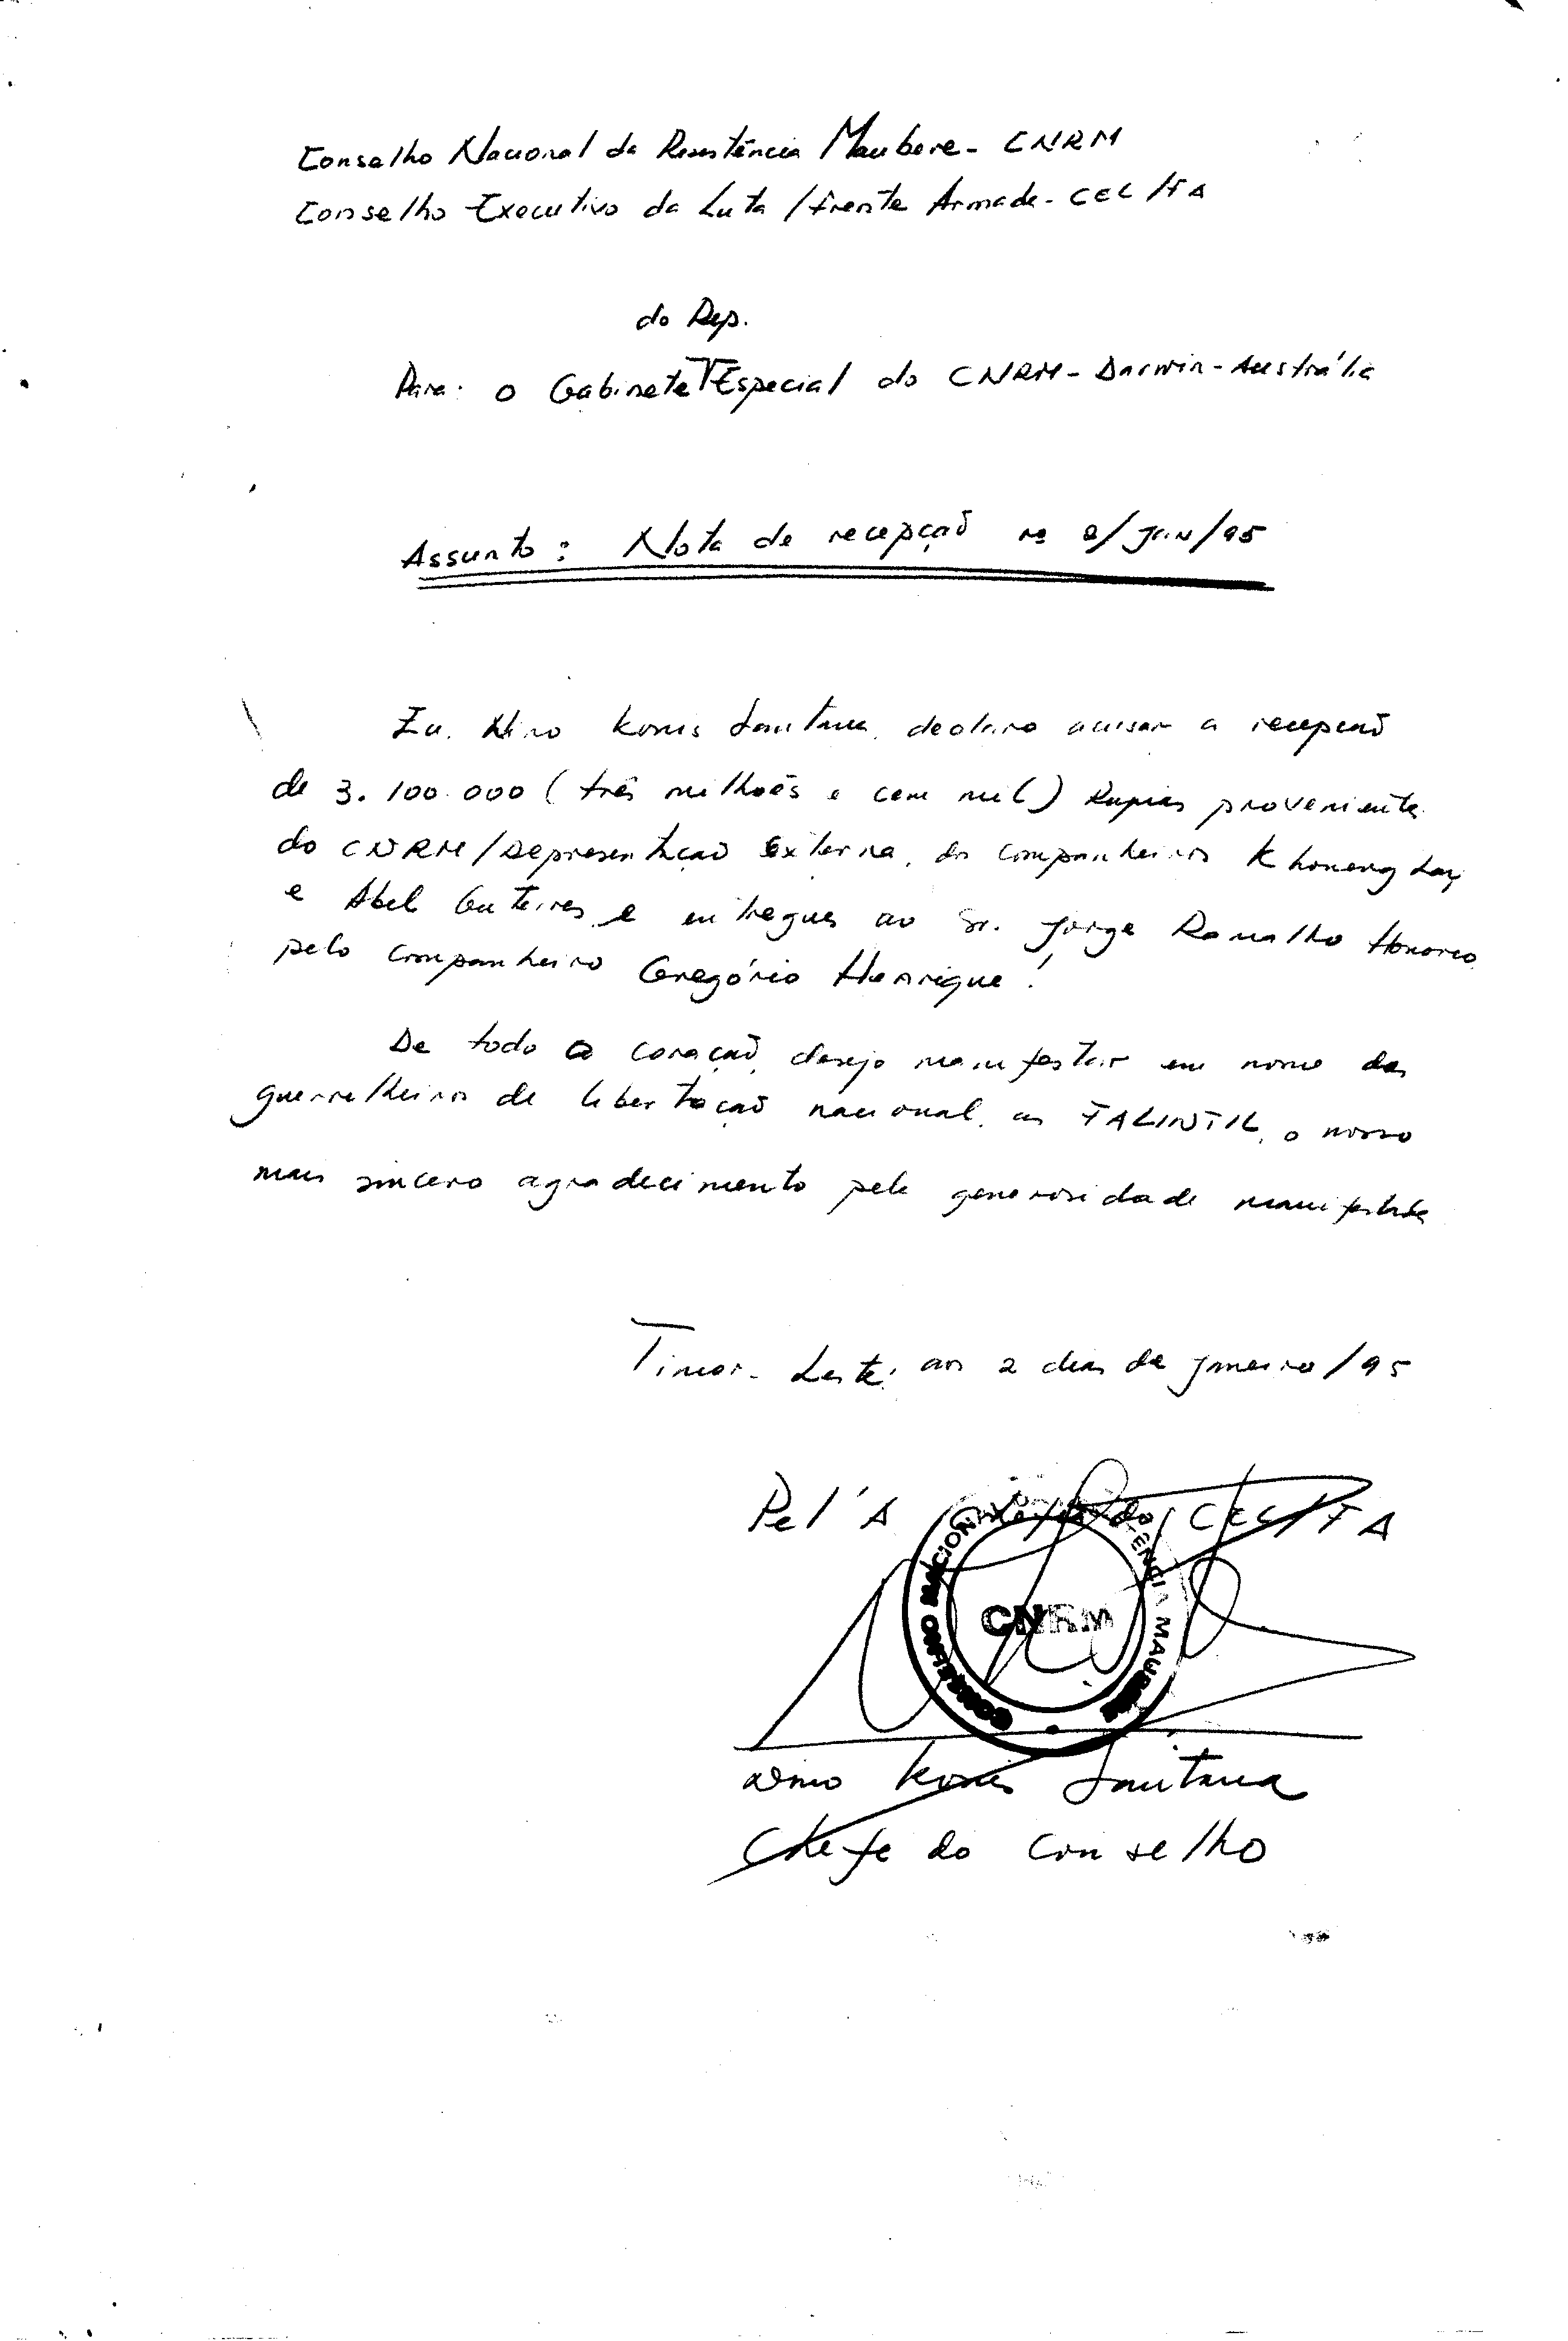 Conselho Nacional da Resistência Maubere - CNRM
Conselho Executivo da Luta / Frente Armada - CEL/FA
do Rep.
Para: O Gabinete Especial do CNRM - Darwin - Austrália
Assunto: Nota de recepção nº 2/Jan/95
Eu, Nino Konis Santana, declaro acusar a recepção
de 3.100.000 (três milhões e cem mil) Rupias proveniente
do CNRM/Representação Externa, dos companheiros
e Abel Guterres e entregues ao Sr. Jorge Ramalho Honorio
pelo companheiro Gregório Henrique!
De todo o coração, desejo manifestar em nome dos
guerrilheiros de libertação nacional, as FALINTIL, o nosso
mais sincero agradecimento pela generosidade manifestada
Timor-Leste, aos 2 dias de Janeiro/95
Pel'A do CEL/FA
CONSELHO NACIONAL DA RESISTÊNCIA MAUBERE
CNRM
Nino Konis Santana
Chefe do Conselho